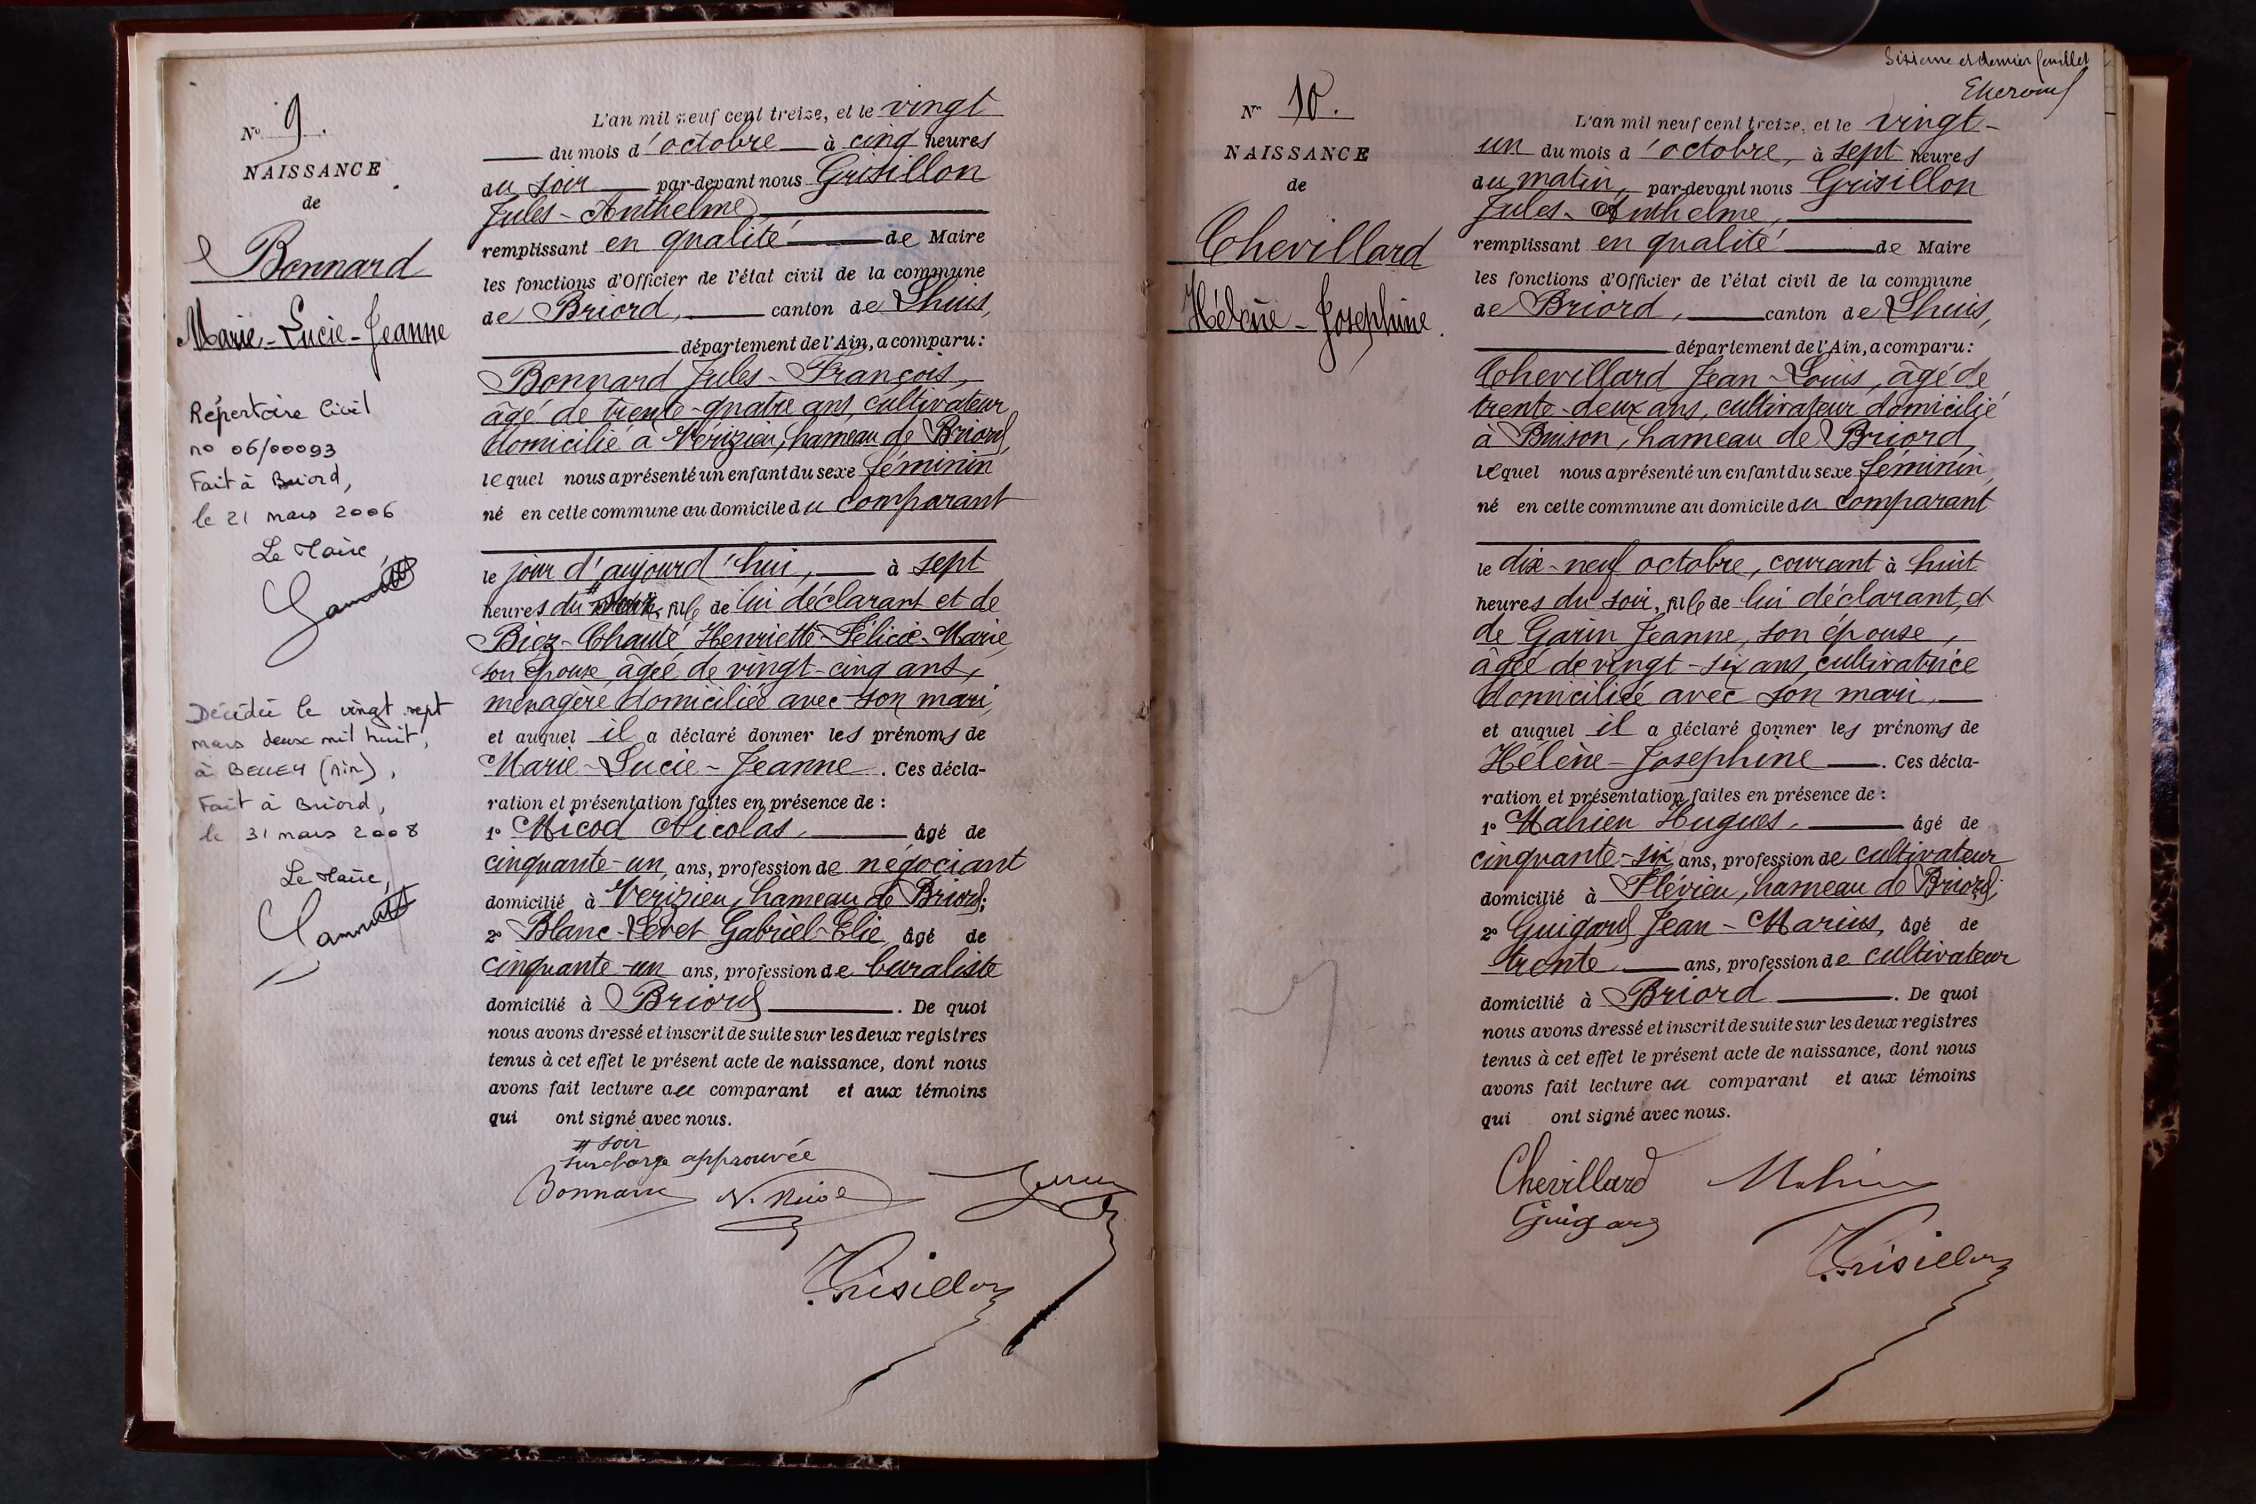 No 9.
NAISSANCE
de
Bonnard
Marie-Lucie-Jeanne
Répertoire Civil
no 06/00093
Fait à Briord,
le 21 mars 2006
Le Maire,
Décédée le vingt sept
mars deux mil huit,
à BELLEY (Ain),
Fait à Briord,
le 31 mars 2008
Le Maire,
L'an mil neuf cent treize, et le vingt
du mois d'octobre à cinq heures
du soir par-devant nous Grisillon
Jules-Anthelme
remplissant en qualité de Maire
les fonctions d'Officier de l'état civil de la commune
de Briord, canton de Lhuis,
département de l'Ain, a comparu:
Bonnard Jules-François,
âgé de trente-quatre ans, cultivateur
domicilié à Vérizieu, hameau de Briord
lequel nous a présenté un enfant du sexe féminin
né en cette commune au domicile du comparant
le jour d'aujourd'hui, à sept
heures du fille de lui déclarant et de
Biez-Chauté Henriette-Félicie-Marie
son épouse, âgée de vingt-cinq ans,
ménagère domiciliée avec son mari,
et auquel il a déclaré donner les prénoms de
Marie-Lucie-Jeanne. Ces décla-
ration et présentation faites en présence de:
1º Micod Nicolas, âgé de
cinquante-un ans, profession de négociant
domicilié à Verizieu, hameau de Briord;
2º Blanc-Levet Gabriel-Elie âgé de
cinquante-un ans, profession de buraliste
domicilié à Briord. De quoi
nous avons dressé et inscrit de suite sur les deux registres
tenus à cet effet le présent acte de naissance, dont nous
avons fait lecture au comparant et aux témoins
qui ont signé avec nous.
# soir
surcharge approuvée
Bonnard N. Micod
Grisillon
Sixième et dernier feuillet
No 10.
NAISSANCE
de
Chevillard
Hélène-Josephine.
L'an mil neuf cent treize, et le vingt-
un du mois d'octobre, à sept heures
du matin, par-devant nous Grisillon
Jules-Anthelme,
remplissant en qualité de Maire
les fonctions d'Officier de l'état civil de la commune
de Briord, canton de Lhuis,
département de l'Ain, a comparu:
Chevillard Jean-Louis, âgé de
trente-deux ans, cultivateur domicilié
à Buison, hameau de Briord,
lequel nous a présenté un enfant du sexe féminin,
né en cette commune au domicile du comparant
le dix-neuf octobre, courant à huit
heures du soir, fille de lui déclarant, et
de Garin Jeanne, son épouse,
âgée de vingt-six ans, cultivatrice
domiciliée avec son mari,
et auquel il a déclaré donner les prénoms de
Hélène-Josephine. Ces décla-
ration et présentation faites en présence de:
1º Mahieu Hugues, âgé de
cinquante-six ans, profession de cultivateur
domicilié à Flévieu, hameau de Briord;
2º Guigard Jean-Marius, âgé de
trente ans, profession de cultivateur
domicilié à Briord. De quoi
nous avons dressé et inscrit de suite sur les deux registres
tenus à cet effet le présent acte de naissance, dont nous
avons fait lecture au comparant et aux témoins
qui ont signé avec nous.
Chevillard Mahieu
Guigard
Grisillon